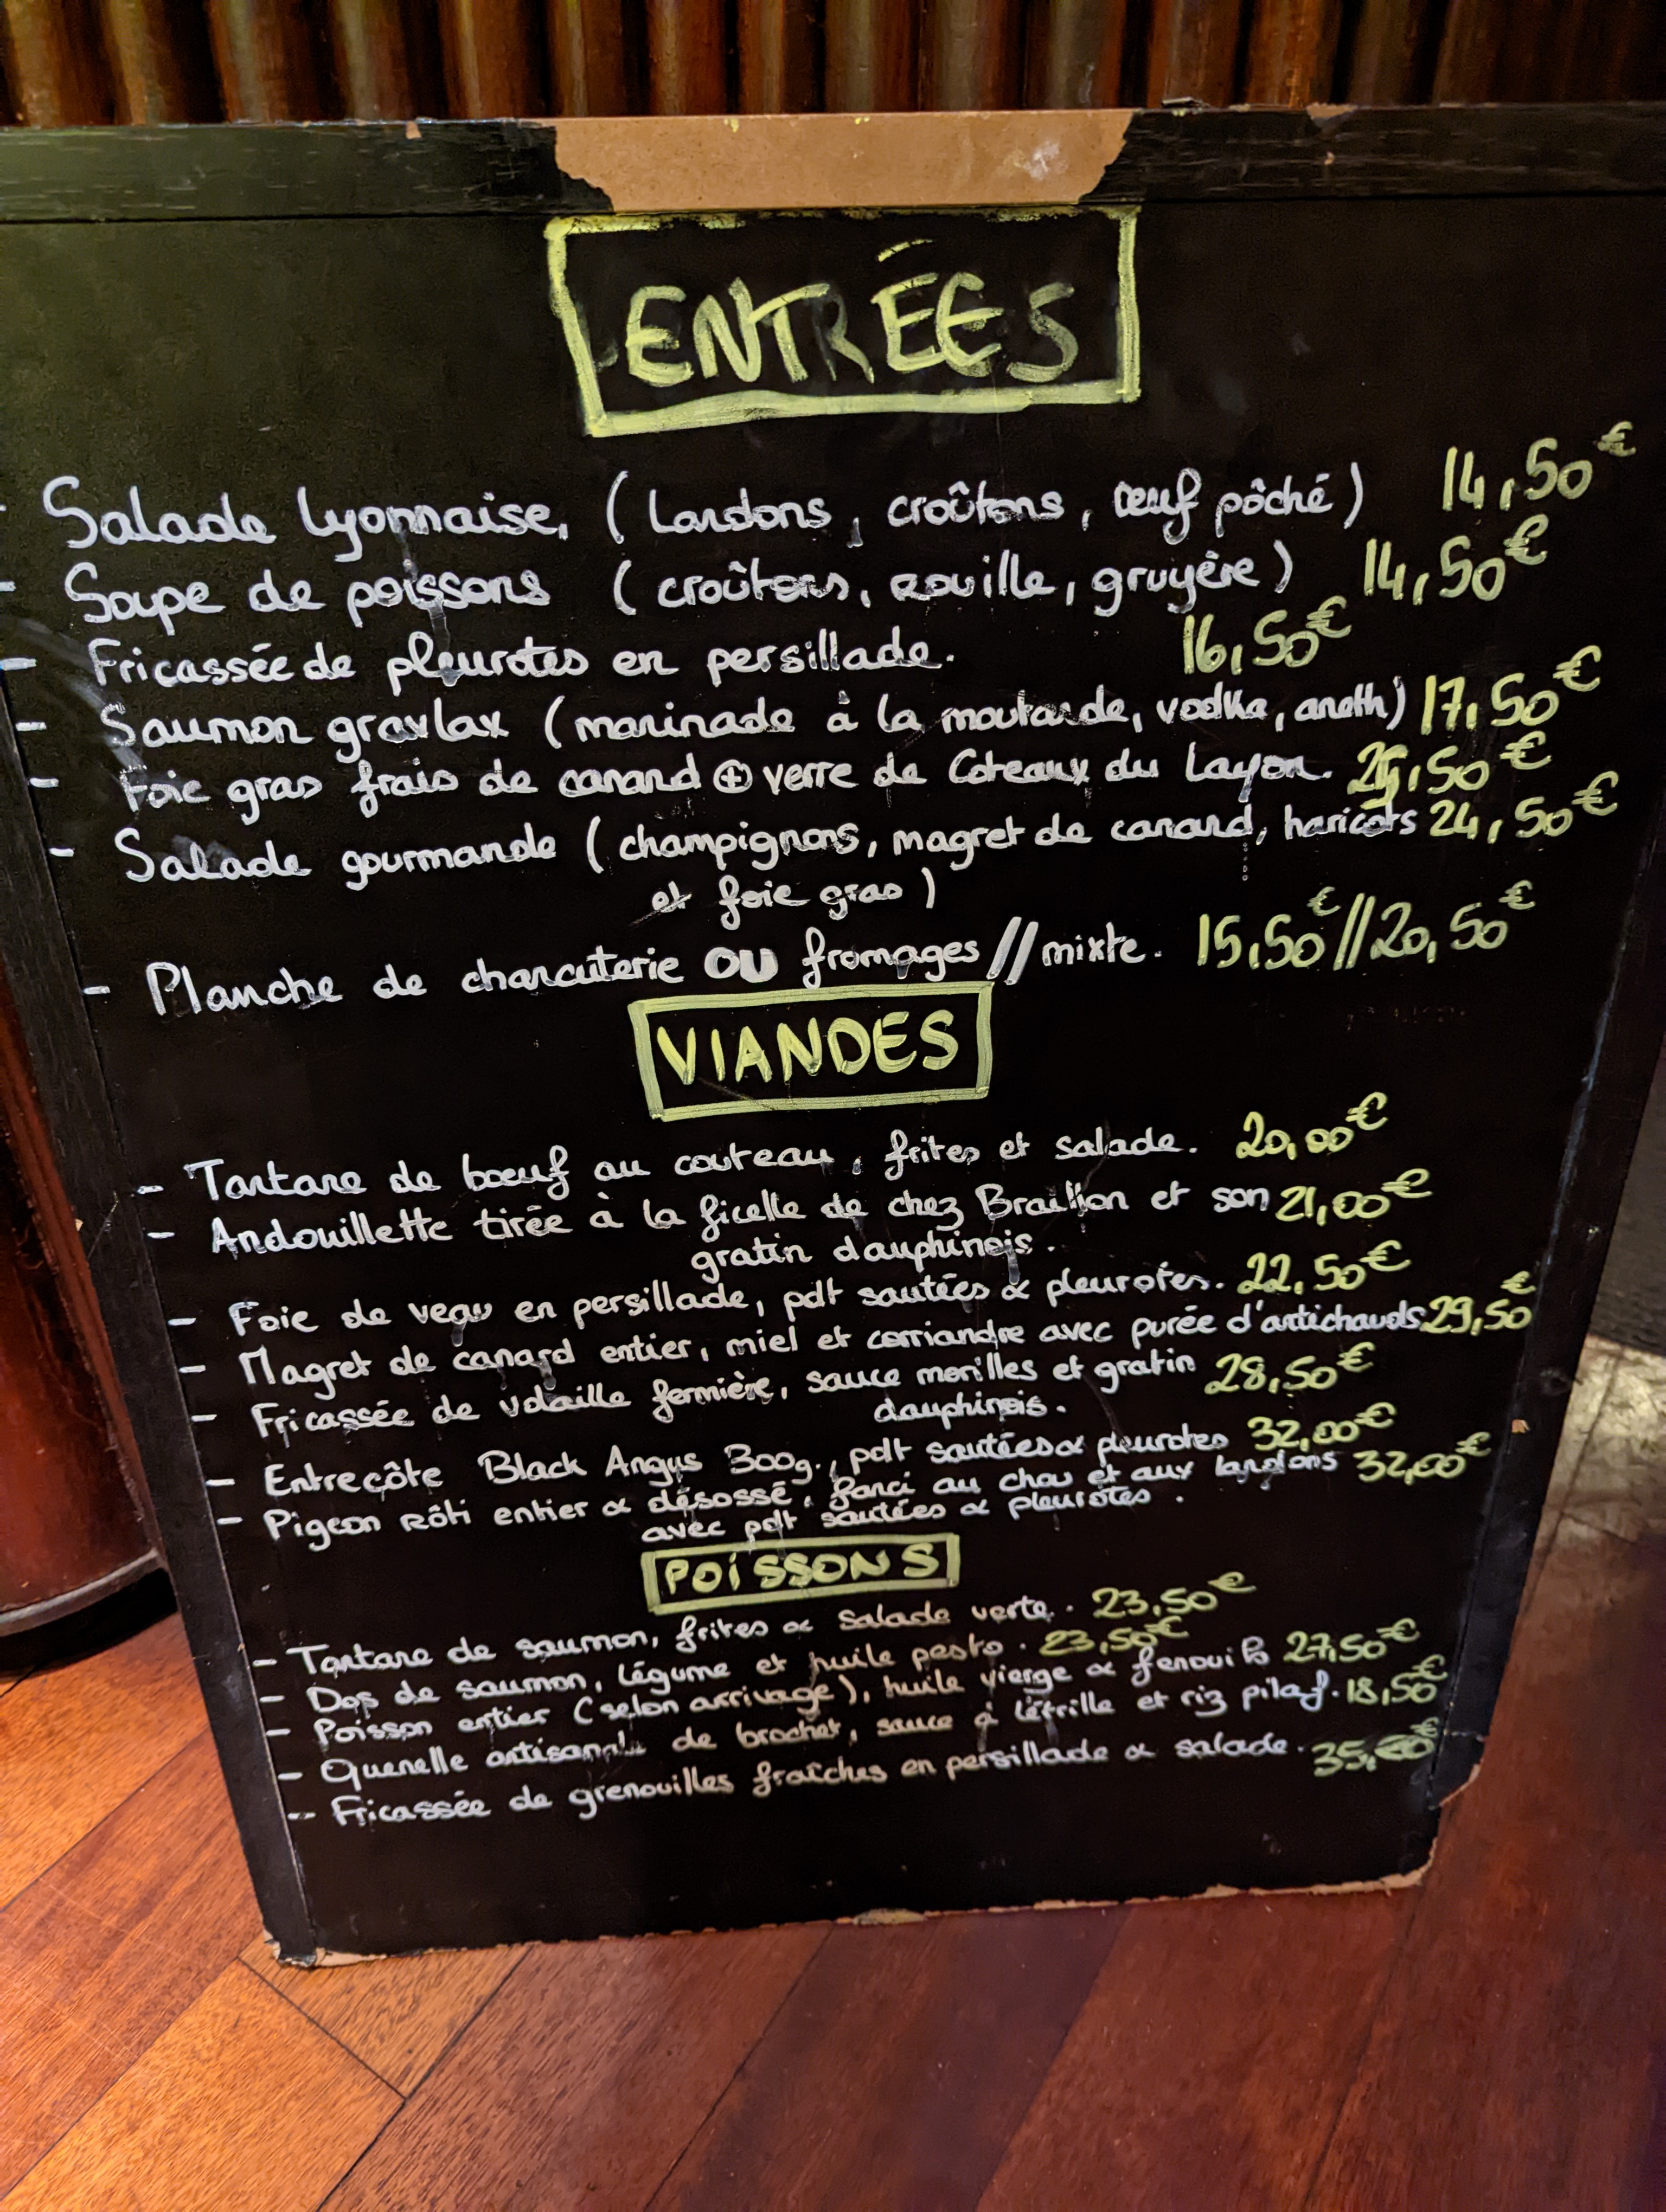 ENTRÉES
- Salade Lyonnaise, (lardons, croûtons, œuf pôché) 14,50€
- Soupe de poissons (croûtons, rouille, gruyère) 14,50€
- Fricassée de pleurotes en persillade. 16,50€
- Saumon gravlax (marinade à la moutarde, vodka, aneth) 17,50€
- Foie gras frais de canard + verre de Coteaux du Layon. ,50€
- Salade gourmande (champignons, magret de canard, haricots 24,50€
et foie gras)
- Planche de charcuterie OU fromages // mixte. 15,50€ // 20,50€
VIANDES
- Tartare de bœuf au couteau, frites et salade. 20,00€
- Andouillette tirée à la ficelle de chez Braillon et son 21,00€
gratin dauphinois.
- Foie de veau en persillade, pdt sautées & pleurotes. 22,50€
- Magret de canard entier, miel et corriandre avec purée d'artichauds. 29,50€
- Fricassée de volaille fermière, sauce morilles et gratin 28,50€
dauphinois.
- Entrecôte Black Angus 300g., pdt sautées & pleurotes 32,00€
- Pigeon rôti entier & désossé, farci au chou et aux lardons 32,00€
avec pdt sautées & pleurotes.
POISSONS
- Tartare de saumon, frites & salade verte. 23,50€
- Dos de saumon, légume et huile pesto. 23,50€
- Poisson entier (selon arrivage), huile vierge & fenouils 27,50€
- Quenelle artisanale de brochet, sauce à l'étrille et riz pilaf. 18,50€
- Fricassée de grenouilles fraîches en persillade & salade. 35,00€